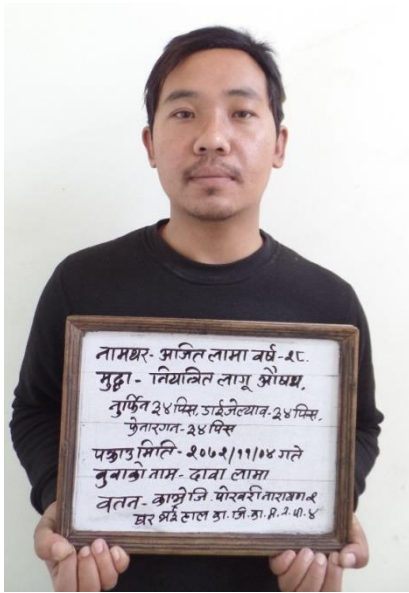 नामथर- अजित लामा वर्ष-२८.
मुद्दा - नियन्त्रित लागू औषध,
नुर्फिन २४ पिस, डाईजेल्याव-२४ पिस,
फेनारगन-२४ पिस
पक्राउ मिति - २०७२/११/०४ गते
बुबाको नाम - दावा लामा
वतन- काभ्रे जि. पोखरी नारायण २
घर भई हाल का. जि. का. म. न. पा. ४